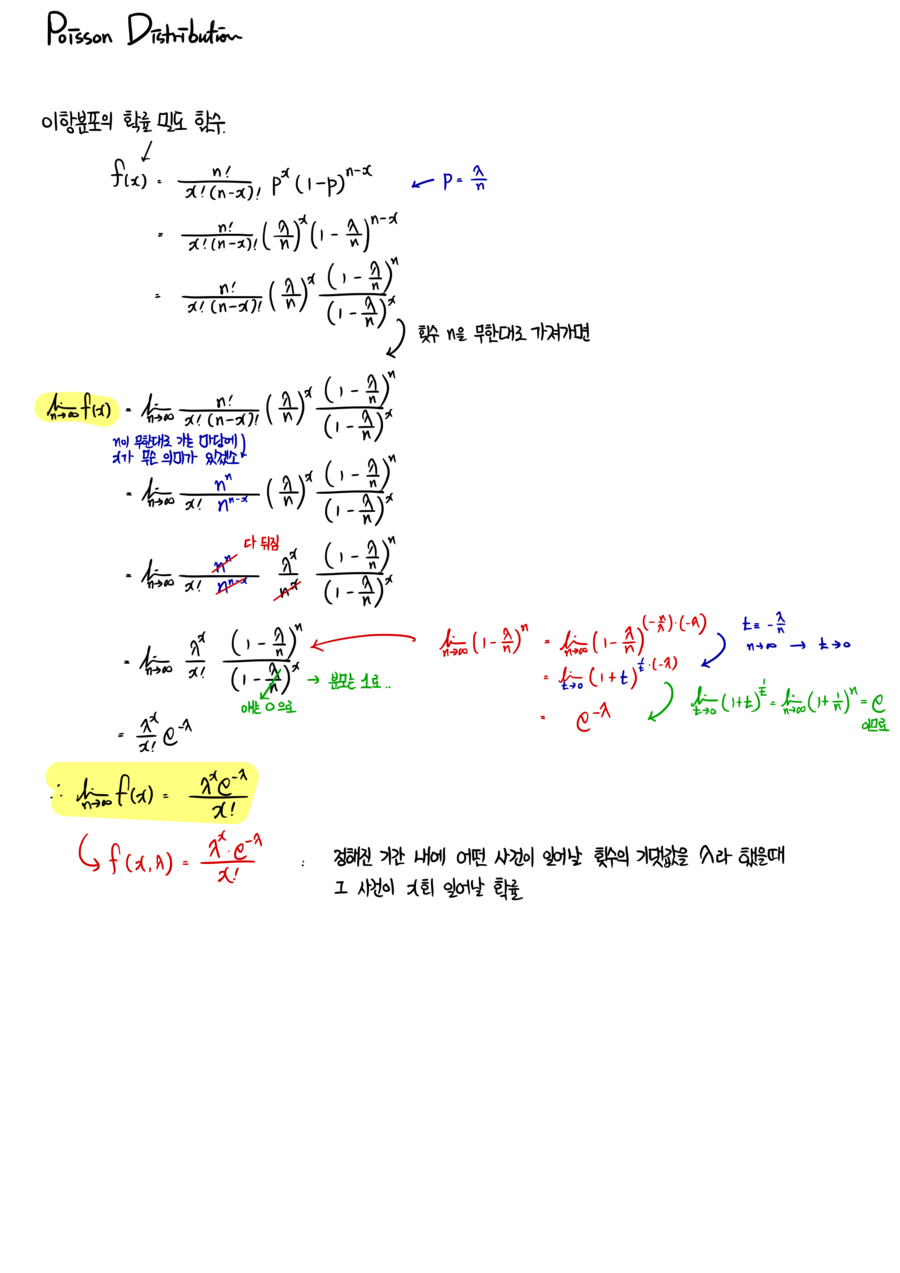 Poisson Distribution
이항분포의 확률 밀도 함수.
f(x) = n!/(x!(n-x)!) p^x (1-p)^(n-x) ← p = λ/n
= n!/(x!(n-x)!) (λ/n)^x (1 - λ/n)^(n-x)
= n!/(x!(n-x)!) (λ/n)^x (1 - λ/n)^n / (1 - λ/n)^x
횟수 n을 무한대로 가져가면
lim n→∞ f(x) = lim n→∞ n!/(x!(n-x)!) (λ/n)^x (1 - λ/n)^n / (1 - λ/n)^x
n이 무한대로 가는 마당에
x가 무슨 의미가 있겠소
= lim n→∞ n^n/(x! n^(n-x)) (λ/n)^x (1 - λ/n)^n / (1 - λ/n)^x
다 뒤짐
= lim n→∞ n^n/(x! n^(n-x)) λ^x/n^x (1 - λ/n)^n / (1 - λ/n)^x
= lim n→∞ λ^x/x! (1 - λ/n)^n / (1 - λ/n)^x → 분모는 1로..
얘는 0으로
= λ^x/x! e^(-λ)
lim n→∞ (1 - λ/n)^n = lim n→∞ (1 - λ/n)^((-n/λ)·(-λ))
t = -λ/n
n→∞ → t→0
= lim t→0 (1+t)^(1/t·(-λ))
= e^(-λ)
lim t→0 (1+t)^(1/t) = lim n→∞ (1+1/n)^n = e
이므로
∴ lim n→∞ f(x) = λ^x e^(-λ)/x!
f(x,λ) = λ^x·e^(-λ)/x! : 정해진 기간 내에 어떤 사건이 일어날 횟수의 기댓값을 λ라 했을때
그 사건이 x회 일어날 확률